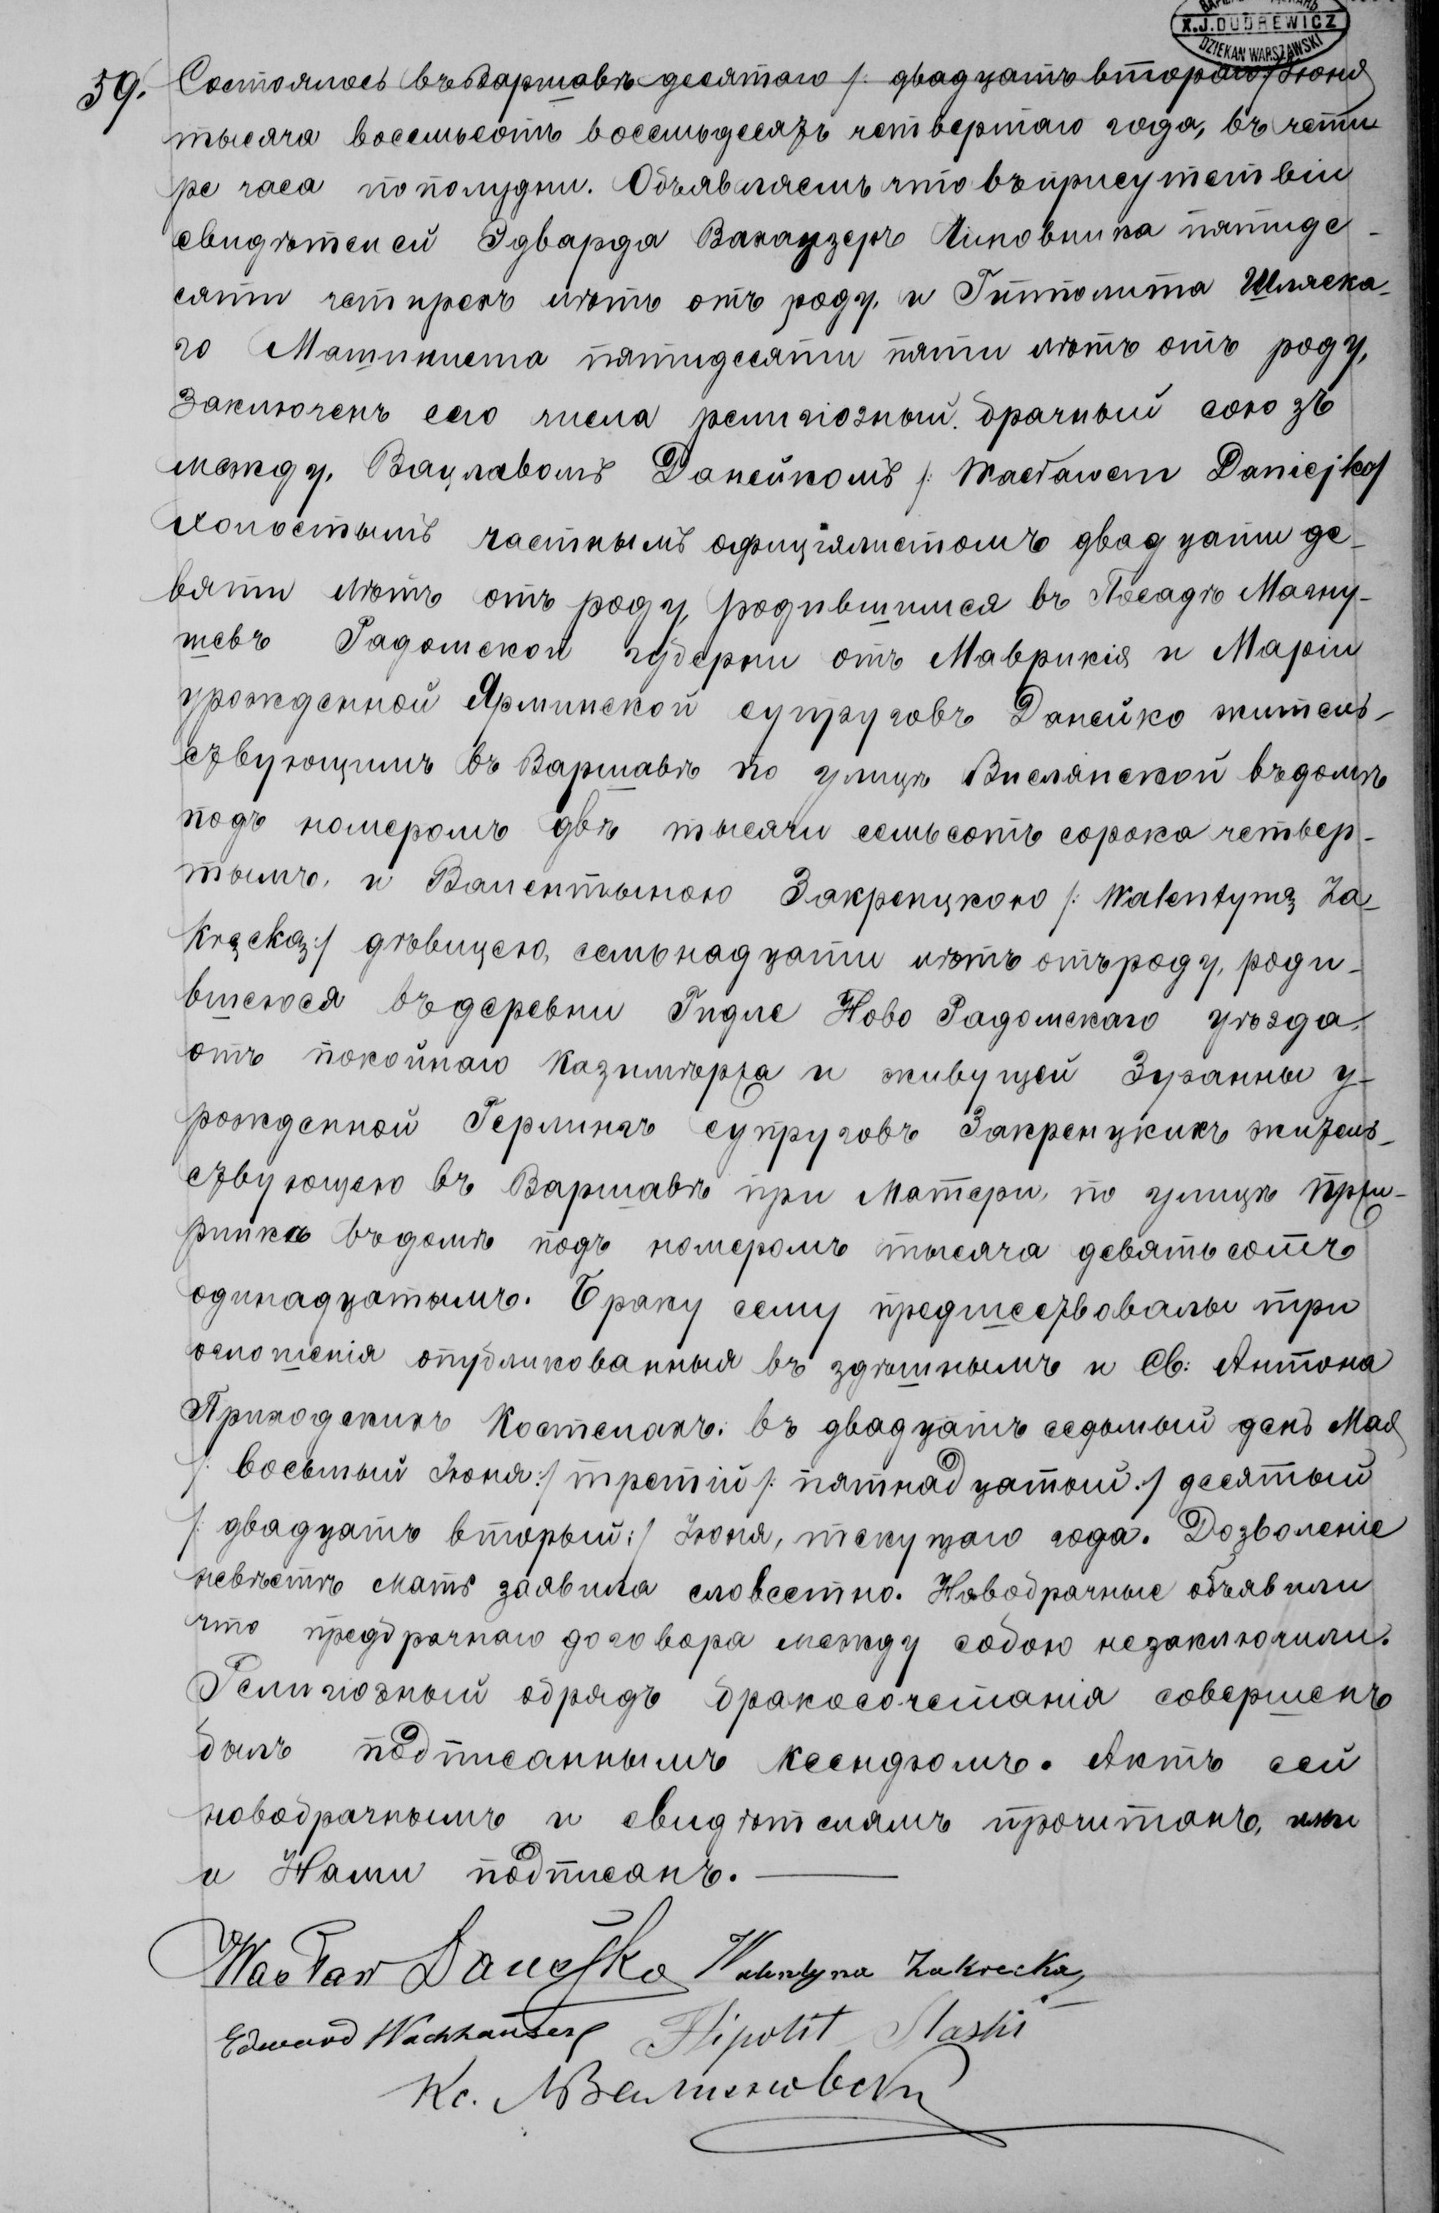 X.J.DUDREWICZ
DZIEKAN WARSZAWSKI
59. Состоялось въ Варшавѣ десятаго /: двадцать втораго:/ Іюня
тысяча восемьсотъ восемьдесятъ четвертаго года, въ четы
ре часа пополудни. Объявляемъ что въ присутствіи
свидѣтелей Эдварда Вакаузеръ Чиновника пятиде-
сяти четырехъ лѣтъ отъ роду, и Гипполита Шляска-
го Машиниста пятидесяти пяти лѣтъ отъ роду,
Заключенъ сего числа религіозный брачный союзъ
между, Вацлавомъ Данейкомъ /: Wacławem Daniejko/
холостымъ частнымъ офиціялистомъ двадцати де-
вяти лѣтъ отъ роду, родившимся въ Посадѣ Магну-
шевъ Радомской губерни отъ Маврикія и Маріи
урожденной Ярминской супруговъ Данейко житель-
ствующимъ въ Варшавѣ по улицѣ Вислянской въ домѣ
подъ номеромъ двѣ тысячи семьсотъ сорока четвер-
тымъ, и Валентыною Закренцкою /: Walentyną Za-
kręcką:/ дѣвицею, семьнадцати лѣтъ отъ роду, роди-
вшеюся въ деревни Гидле Ново Радомскаго уѣзда
отъ покойнаго Казимѣрза и живущей Зузанны у-
рожденной Герлингъ супруговъ Закренцкихъ житель-
ствующею въ Варшавѣ при Матери, по улицѣ
въ домѣ подъ номеромъ тысяча девятьсотъ
одинадцатымъ. Браку сему предшествовалы три
оглошенія опубликованныя въ здѣшнымъ и Св: Антона
Приходскихъ Костелахъ: въ двадцать седьмый день Мая
/: восьмый Іюня:/ третій /: пятнадцатый:/ десятый
/: двадцать вторый:/ Іюня, текущаго года. Дозволеніе
невѣстѣ мать заявила словестно. Новобрачные объявили
что предбрачнаго договора между собою незаключили.
Религіозный обрядъ бракосочетанія совершенъ
былъ подписаннымъ ксендзомъ. Актъ сей
новобрачнымъ и свидѣтелямъ прочитанъ, ими
и Нами подписанъ.
Wacław Daneyko Walentyna Zakrecka
Edward Wachhauser Hipolit Slaski
Кс.